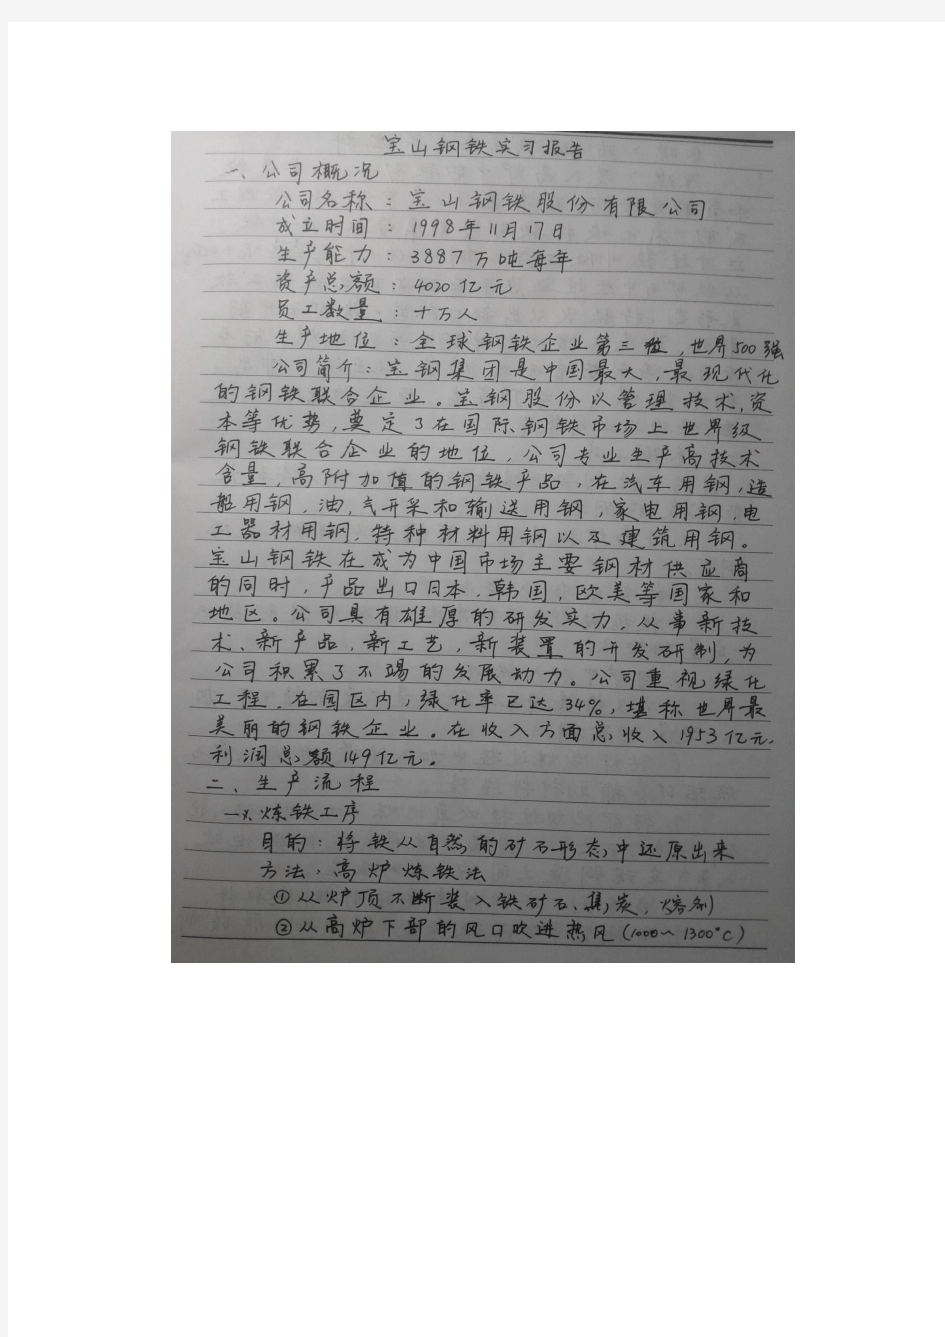 宝山钢铁实习报告
一、公司概况
公司名称：宝山钢铁股份有限公司
成立时间：1998年11月17日
生产能力：3887万吨每年
资产总额：4020亿元
员工数量：十万人
生产地位：全球钢铁企业第三位，世界500强
公司简介：宝钢集团是中国最大，最现代化
的钢铁联合企业。宝钢股份以管理技术，资
本等优势，奠定了在国际钢铁市场上世界级
钢铁联合企业的地位，公司专业生产高技术
含量，高附加值的钢铁产品，在汽车用钢，造
船用钢，油，气开采和输送用钢，家电用钢，电
工器材用钢，特种材料用钢以及建筑用钢。
宝山钢铁在成为中国市场主要钢材供应商
的同时，产品出口日本，韩国，欧美等国家和
地区。公司具有雄厚的研发实力，从事新技
术、新产品，新工艺，新装置的开发研制，为
公司积累了不竭的发展动力。公司重视绿化
工程，在园区内，绿化率已达34%，堪称世界最
美丽的钢铁企业。在收入方面总收入1953亿元，
利润总额149亿元。
二、生产流程
一>、炼铁工序
目的：将铁从自然的矿石形态中还原出来
方法：高炉炼铁法
①从炉顶不断装入铁矿石、焦炭，熔剂
②从高炉下部的风口吹进热风(1000~1300°C)